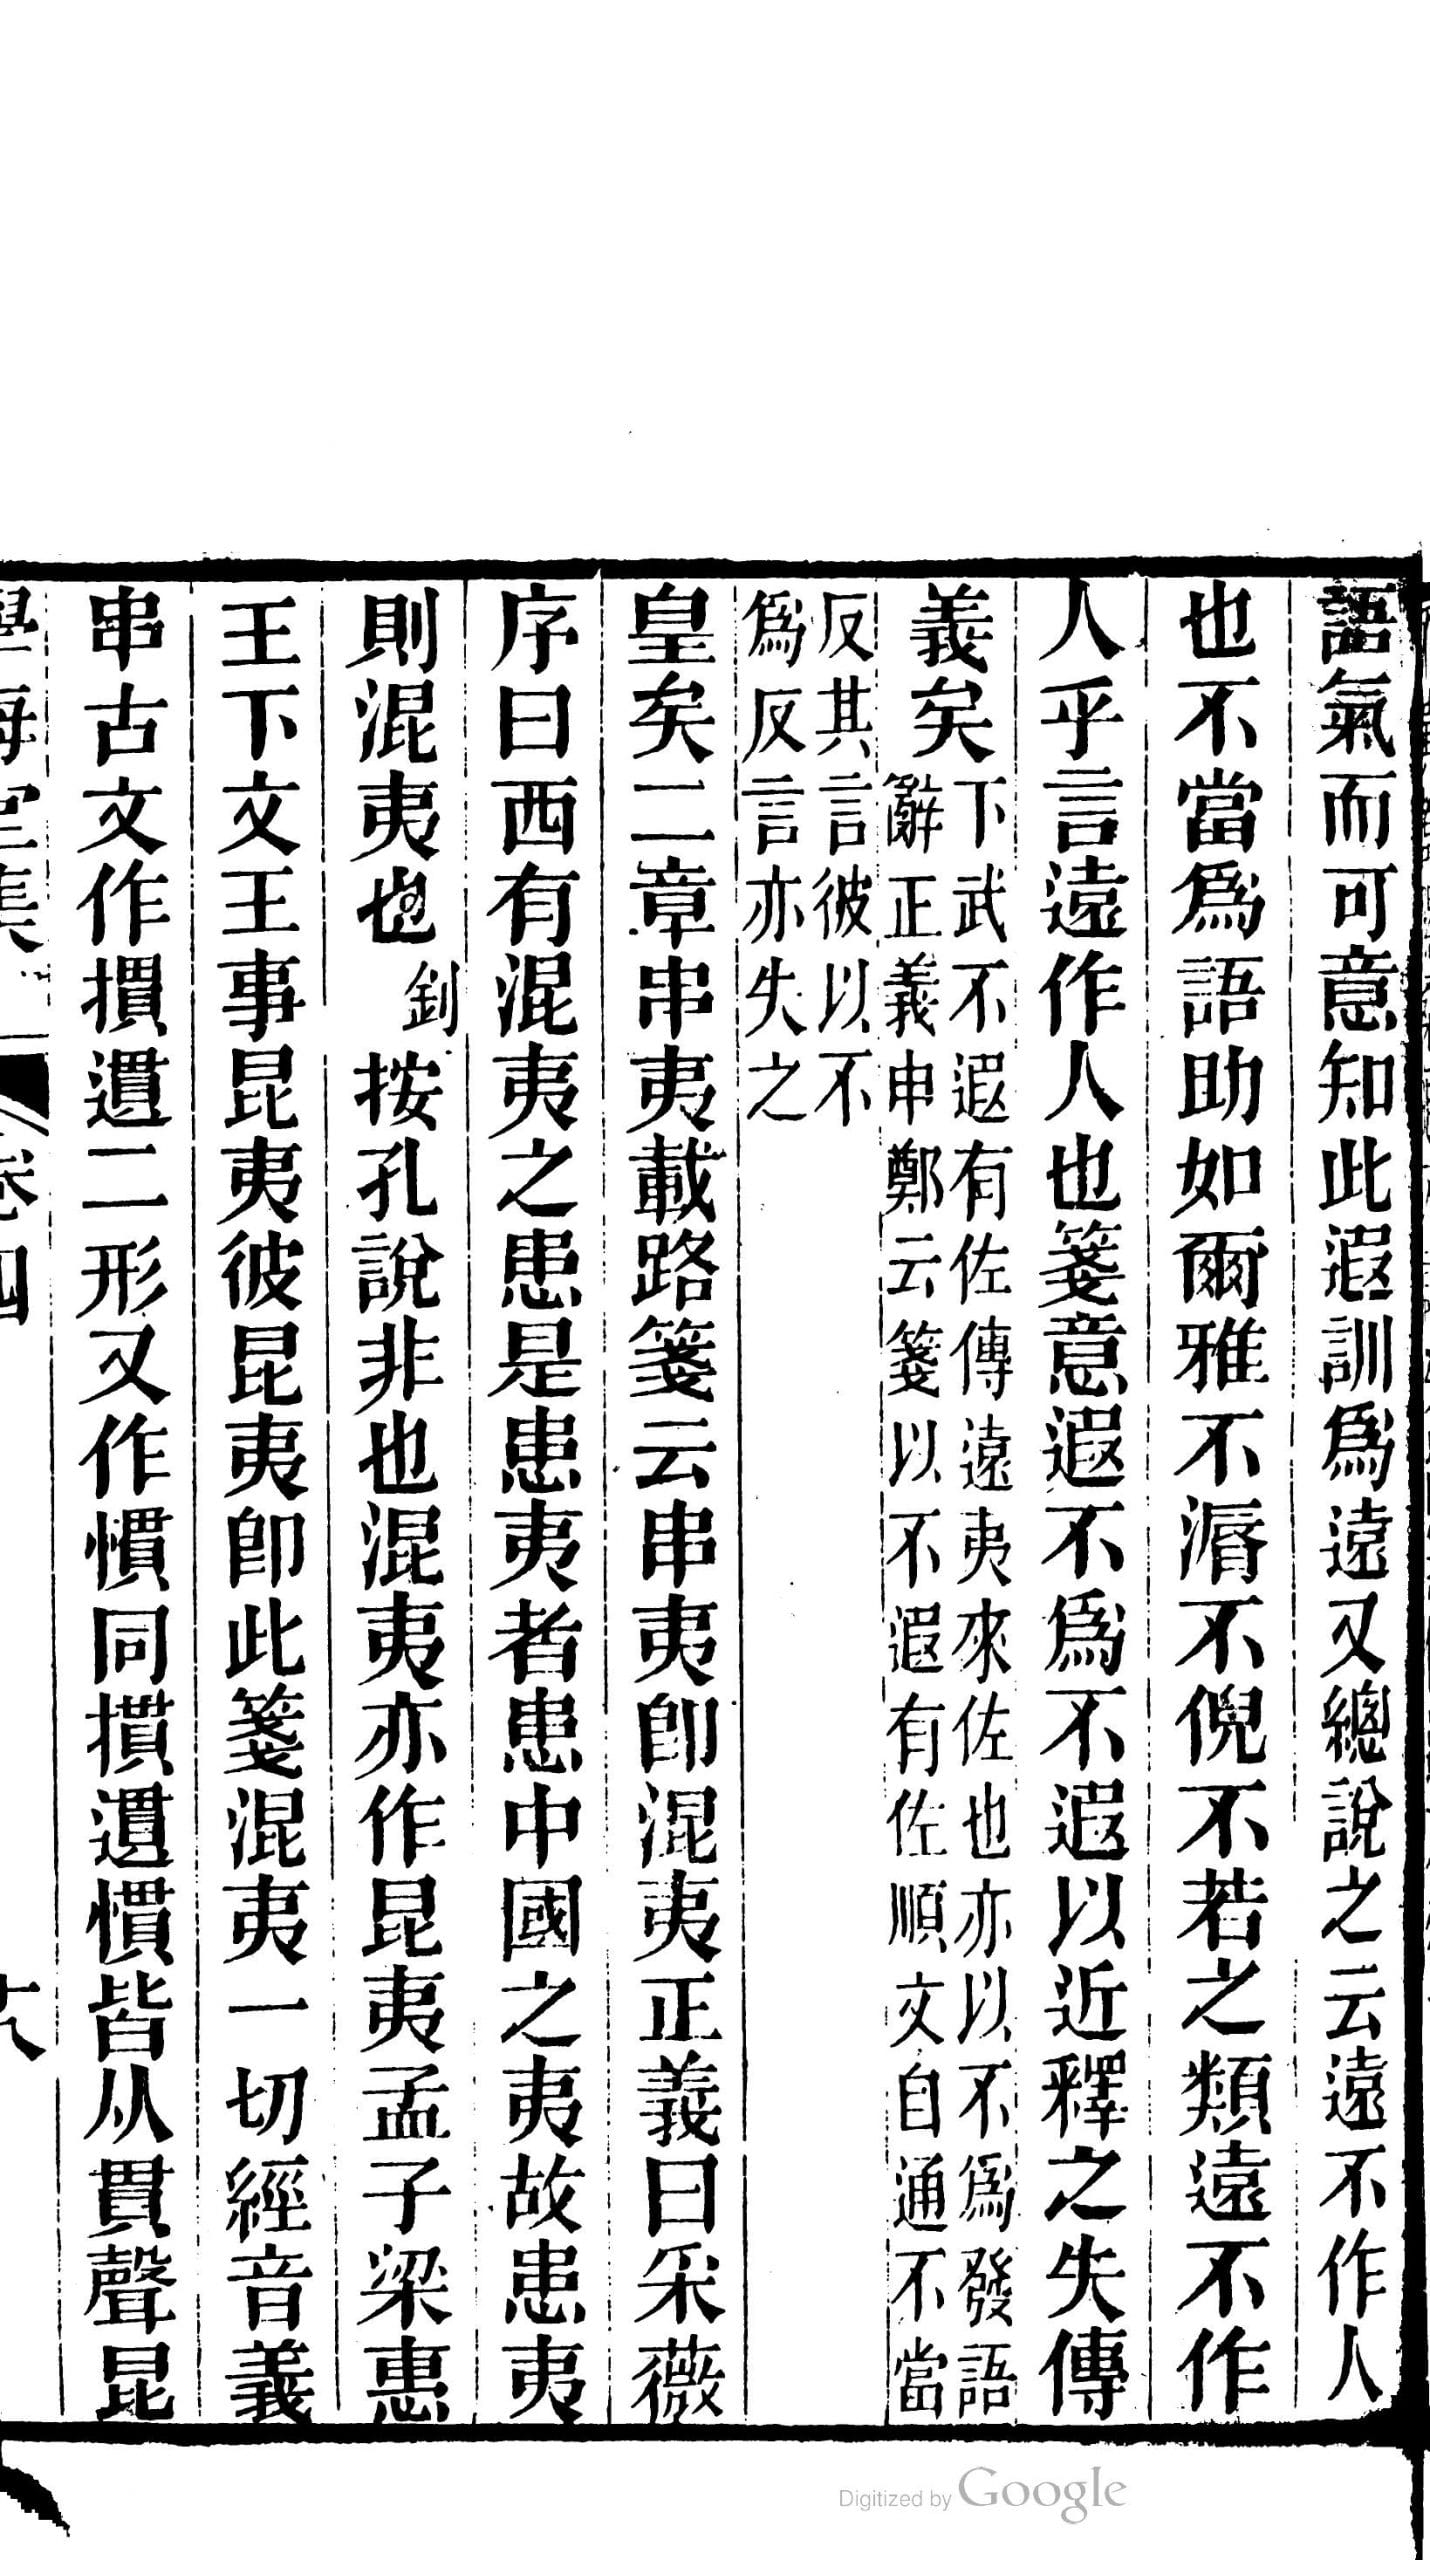 語氣而可意知此遐訓爲遠又總說之云遠不作人
也不當爲語助如爾雅不漘不倪不若之類遠不作
人乎言遠作人也箋意遐不爲不遐以近釋之失傳
義矣下武不遐有佐傳遠夷來佐也亦以不爲發語
辭正義申鄭云箋以不遐有佐順文自通不當
反其言彼以不
爲反言亦失之
皇矣二章串夷載路箋云串夷卽混夷正義曰采薇
序曰西有混夷之患是患夷者患中國之夷故患夷
則混夷也釗按孔說非也混夷亦作昆夷孟子梁惠
王下文王事昆夷彼昆夷卽此箋混夷一切經音義
串古文作摜遺二形又作慣同摜遺慣皆从貫聲昆
學海堂集
卷四
十八
Digitized by Google